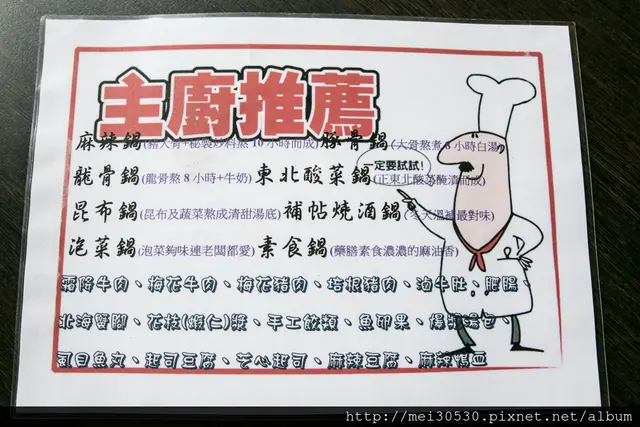 主廚推薦
麻辣鍋(豬大骨+秘製炒料熬 10 小時而成) 豚骨鍋(大骨熬煮 8 小時白湯)
一定要試試!
龍骨鍋(龍骨熬 8 小時+牛奶) 東北酸菜鍋(正東北酸菜醃漬而成)
昆布鍋(昆布及蔬菜熬成清甜湯底) 補帖燒酒鍋(冬天溫補最對味)
泡菜鍋(泡菜夠味連老闆都愛) 素食鍋(藥膳素食濃濃的麻油香)
霜降牛肉、梅花牛肉、梅花豬肉、培根豬肉、滷牛肚、肥腸、
北海蟹腳、花枝(蝦仁)漿、手工餃類、魚卵果、爆漿湯包
虱目魚丸、起司豆腐、芝心起司、麻辣豆腐、麻辣鴨血
http://mei30530.pixnet.net/album